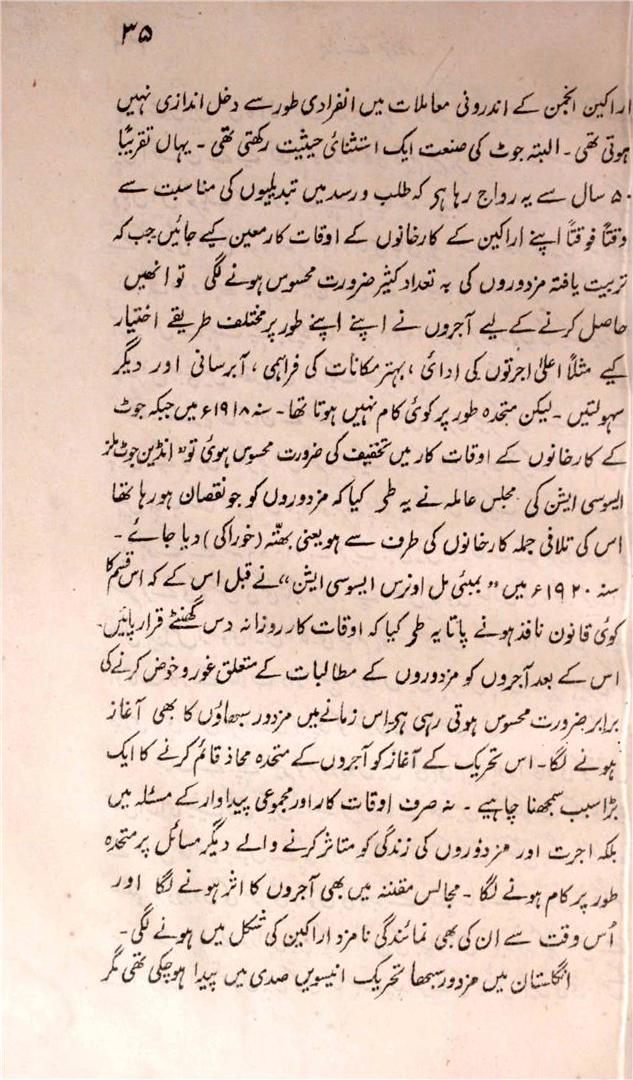 ۳۵
اراکین انجمن کے اندرونی معاملات میں انفرادی طور سے دخل اندازی نہیں
ہوتی تھی ۔ البتہ جوٹ کی صنعت ایک استثنائی حیثیت رکھتی تھی ۔ یہاں تقریباً
۵۰ سال سے یہ رواج رہا ہی کہ طلب و رسد میں تبدیلیوں کی مناسبت سے
وقتاً فوقتاً اپنے اراکین کے کارخانوں کے اوقات کار معین کیے جائیں جب کہ
تربیت یافتہ مزدوروں کی بہ تعداد کثیر ضرورت محسوس ہونے لگی تو انھیں
حاصل کرنے کے لیے آجروں نے اپنے اپنے طور پر مختلف طریقے اختیار
کیے مثلاً اعلیٰ اجرتوں کی ادائی ، بہتر مکانات کی فراہمی ، آبرسانی اور دیگر
سہولتیں ۔ لیکن متحدہ طور پر کوئی کام نہیں ہوتا تھا ۔ سنہ ۱۹۱۸ء میں جبکہ جوٹ
کے کارخانوں کے اوقات کار میں تخفیف کی ضرورت محسوس ہوئی تو ” انڈین جوٹ ملز
ایسوسی ایشن کی مجلس عاملہ نے یہ طی کیا کہ مزدوروں کو جو نقصان ہو رہا تھا
اس کی تلافی جملہ کارخانوں کی طرف سے ہو یعنی بھتّہ (خوراکی) دیا جائے ۔
سنہ ۱۹۲۰ء میں ” بمبئی مل اونرس ایسوسی ایشن “ نے قبل اس کے کہ اس قسم کا
کوئی قانون نافذ ہونے پاتا یہ طی کیا کہ اوقات کار روزانہ دس گھنٹے قرار پائیں۔
اس کے بعد آجروں کو مزدوروں کے مطالبات کے متعلق غور و خوض کرنے کی
برابر ضرورت محسوس ہوتی رہی ہی۔ اس زمانے میں مزدور سبھاؤں کا بھی آغاز
ہونے لگا۔ اس تحریک کے آغاز کو آجروں کے متحدہ محاذ قائم کرنے کا ایک
بڑا سبب سمجھنا چاہیے ۔ نہ صرف اوقات کار اور مجموعی پیداوار کے مسئلہ میں
بلکہ اجرت اور مزدوروں کی زندگی کو متاثر کرنے والے دیگر مسائل پر متحدہ
طور پر کام ہونے لگا ۔ مجالس مقننہ میں بھی آجروں کا اثر ہونے لگا اور
اُس وقت سے ان کی بھی نمائندگی نامزد اراکین کی شکل میں ہونے لگی۔
انگلستان میں مزدور سبھا تحریک انیسویں صدی میں پیدا ہو چکی تھی مگر